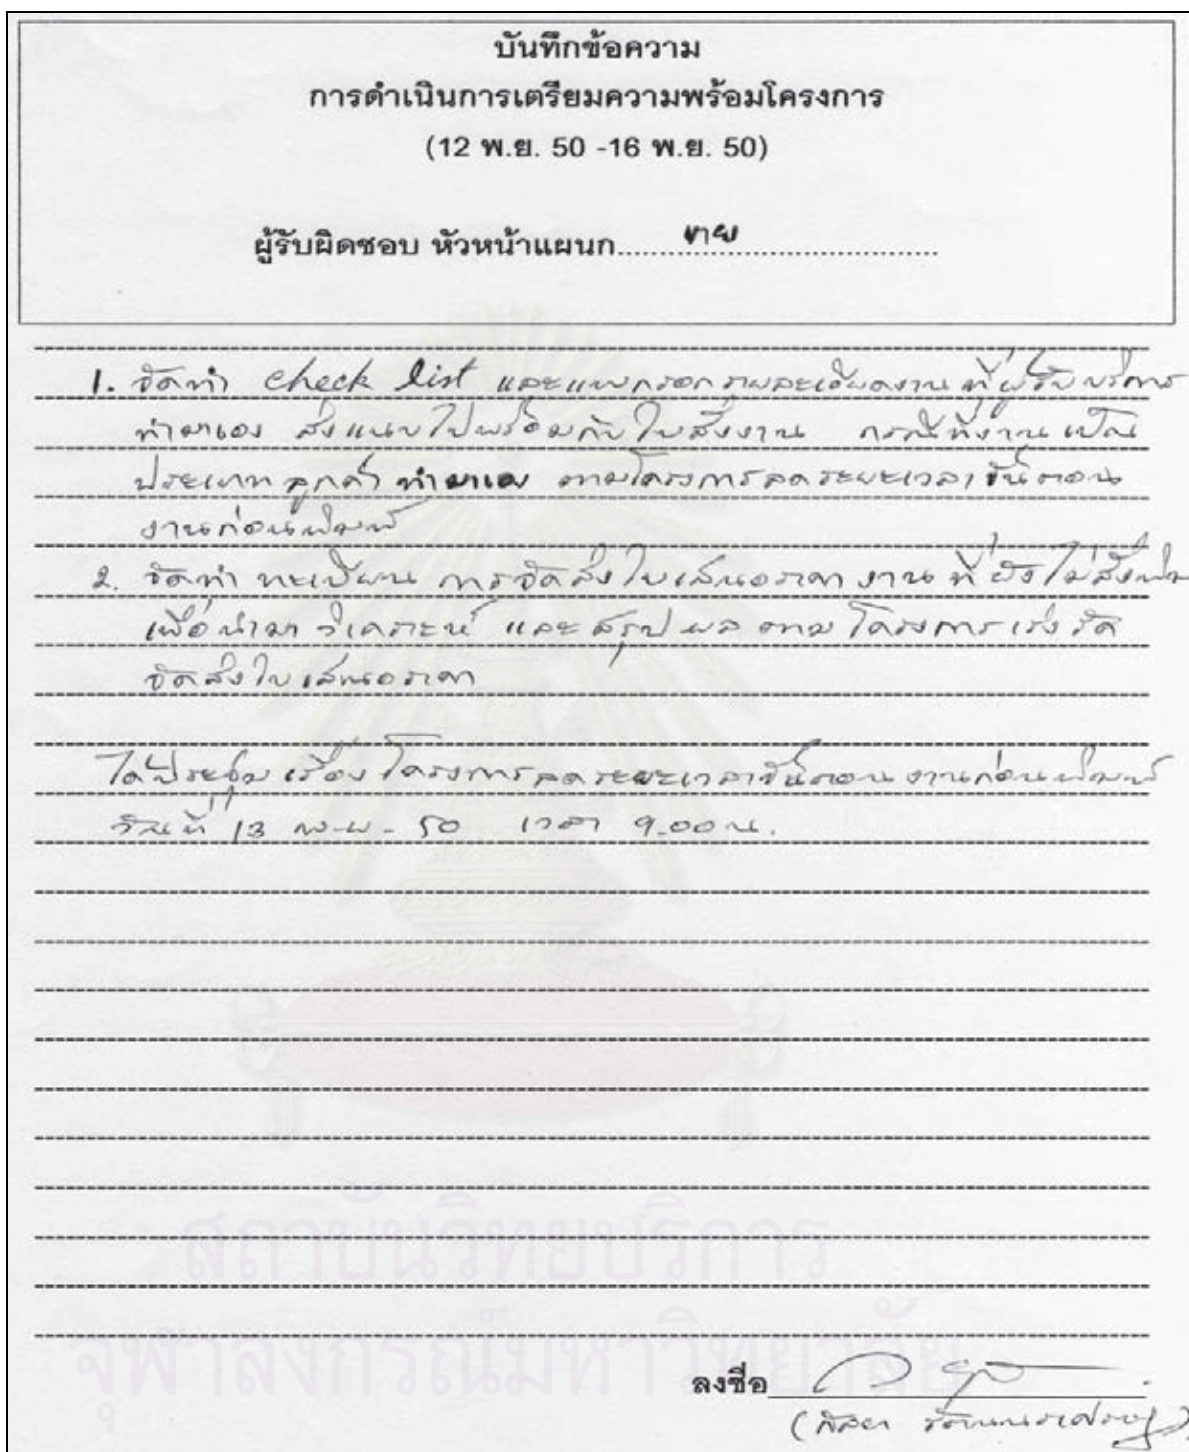 บันทึกข้อความ
การดำเนินการเตรียมความพร้อมโครงการ
(12 พ.ย. 50 -16 พ.ย. 50)
ผู้รับผิดชอบ หัวหน้าแผนก......ขาย..................
1. จัดทำ check list และแบบกรอกรายละเอียดงาน ที่ผู้รับบริการ
ทำมาเอง ส่งแนบไปพร้อมกับใบสั่งงาน กรณีที่งานเป็น
ประเภทลูกค้าทำมาเอง ตามโครงการลดระยะเวลาขั้นตอน
งานก่อนพิมพ์
2. จัดทำ ทะเบียน การจัดส่งใบเสนอราคา งานที่ยังไม่สั่งพิมพ์
เพื่อนำมาวิเคราะห์ และสรุปผล ตามโครงการเร่งรัด
จัดส่งใบเสนอราคา
ได้ประชุม เรื่อง โครงการลดระยะเวลาขั้นตอนงานก่อนพิมพ์
วันที่ 13 พ.ย. 50 เวลา 9.00 น.
สถาบันวิทยบริการ
จุฬาลงกรณ์มหาวิทยาลัย
ลงชื่อ